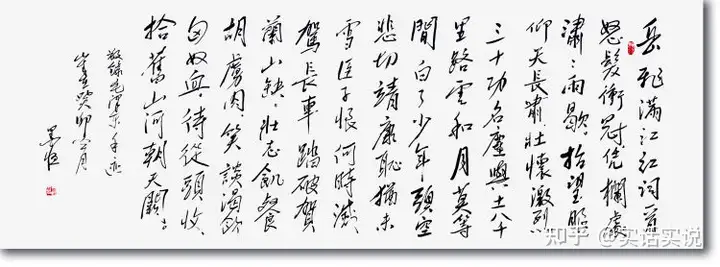 岳飛滿江紅詞一首
怒髮衝冠凭欄處
瀟〻雨歇抬望眼
仰天長嘯壯懷激烈
三十功名塵與土八千
里路雲和月莫等
閒白了少年頭空
悲切靖康恥猶未
雪臣子恨何時滅
駕長車踏破賀
蘭山缺壯志飢餐
胡虜肉笑談渴飲
匈奴血待從頭收
拾舊山河朝天闕
毛澤東手迹
癸卯
知乎 @实话实说